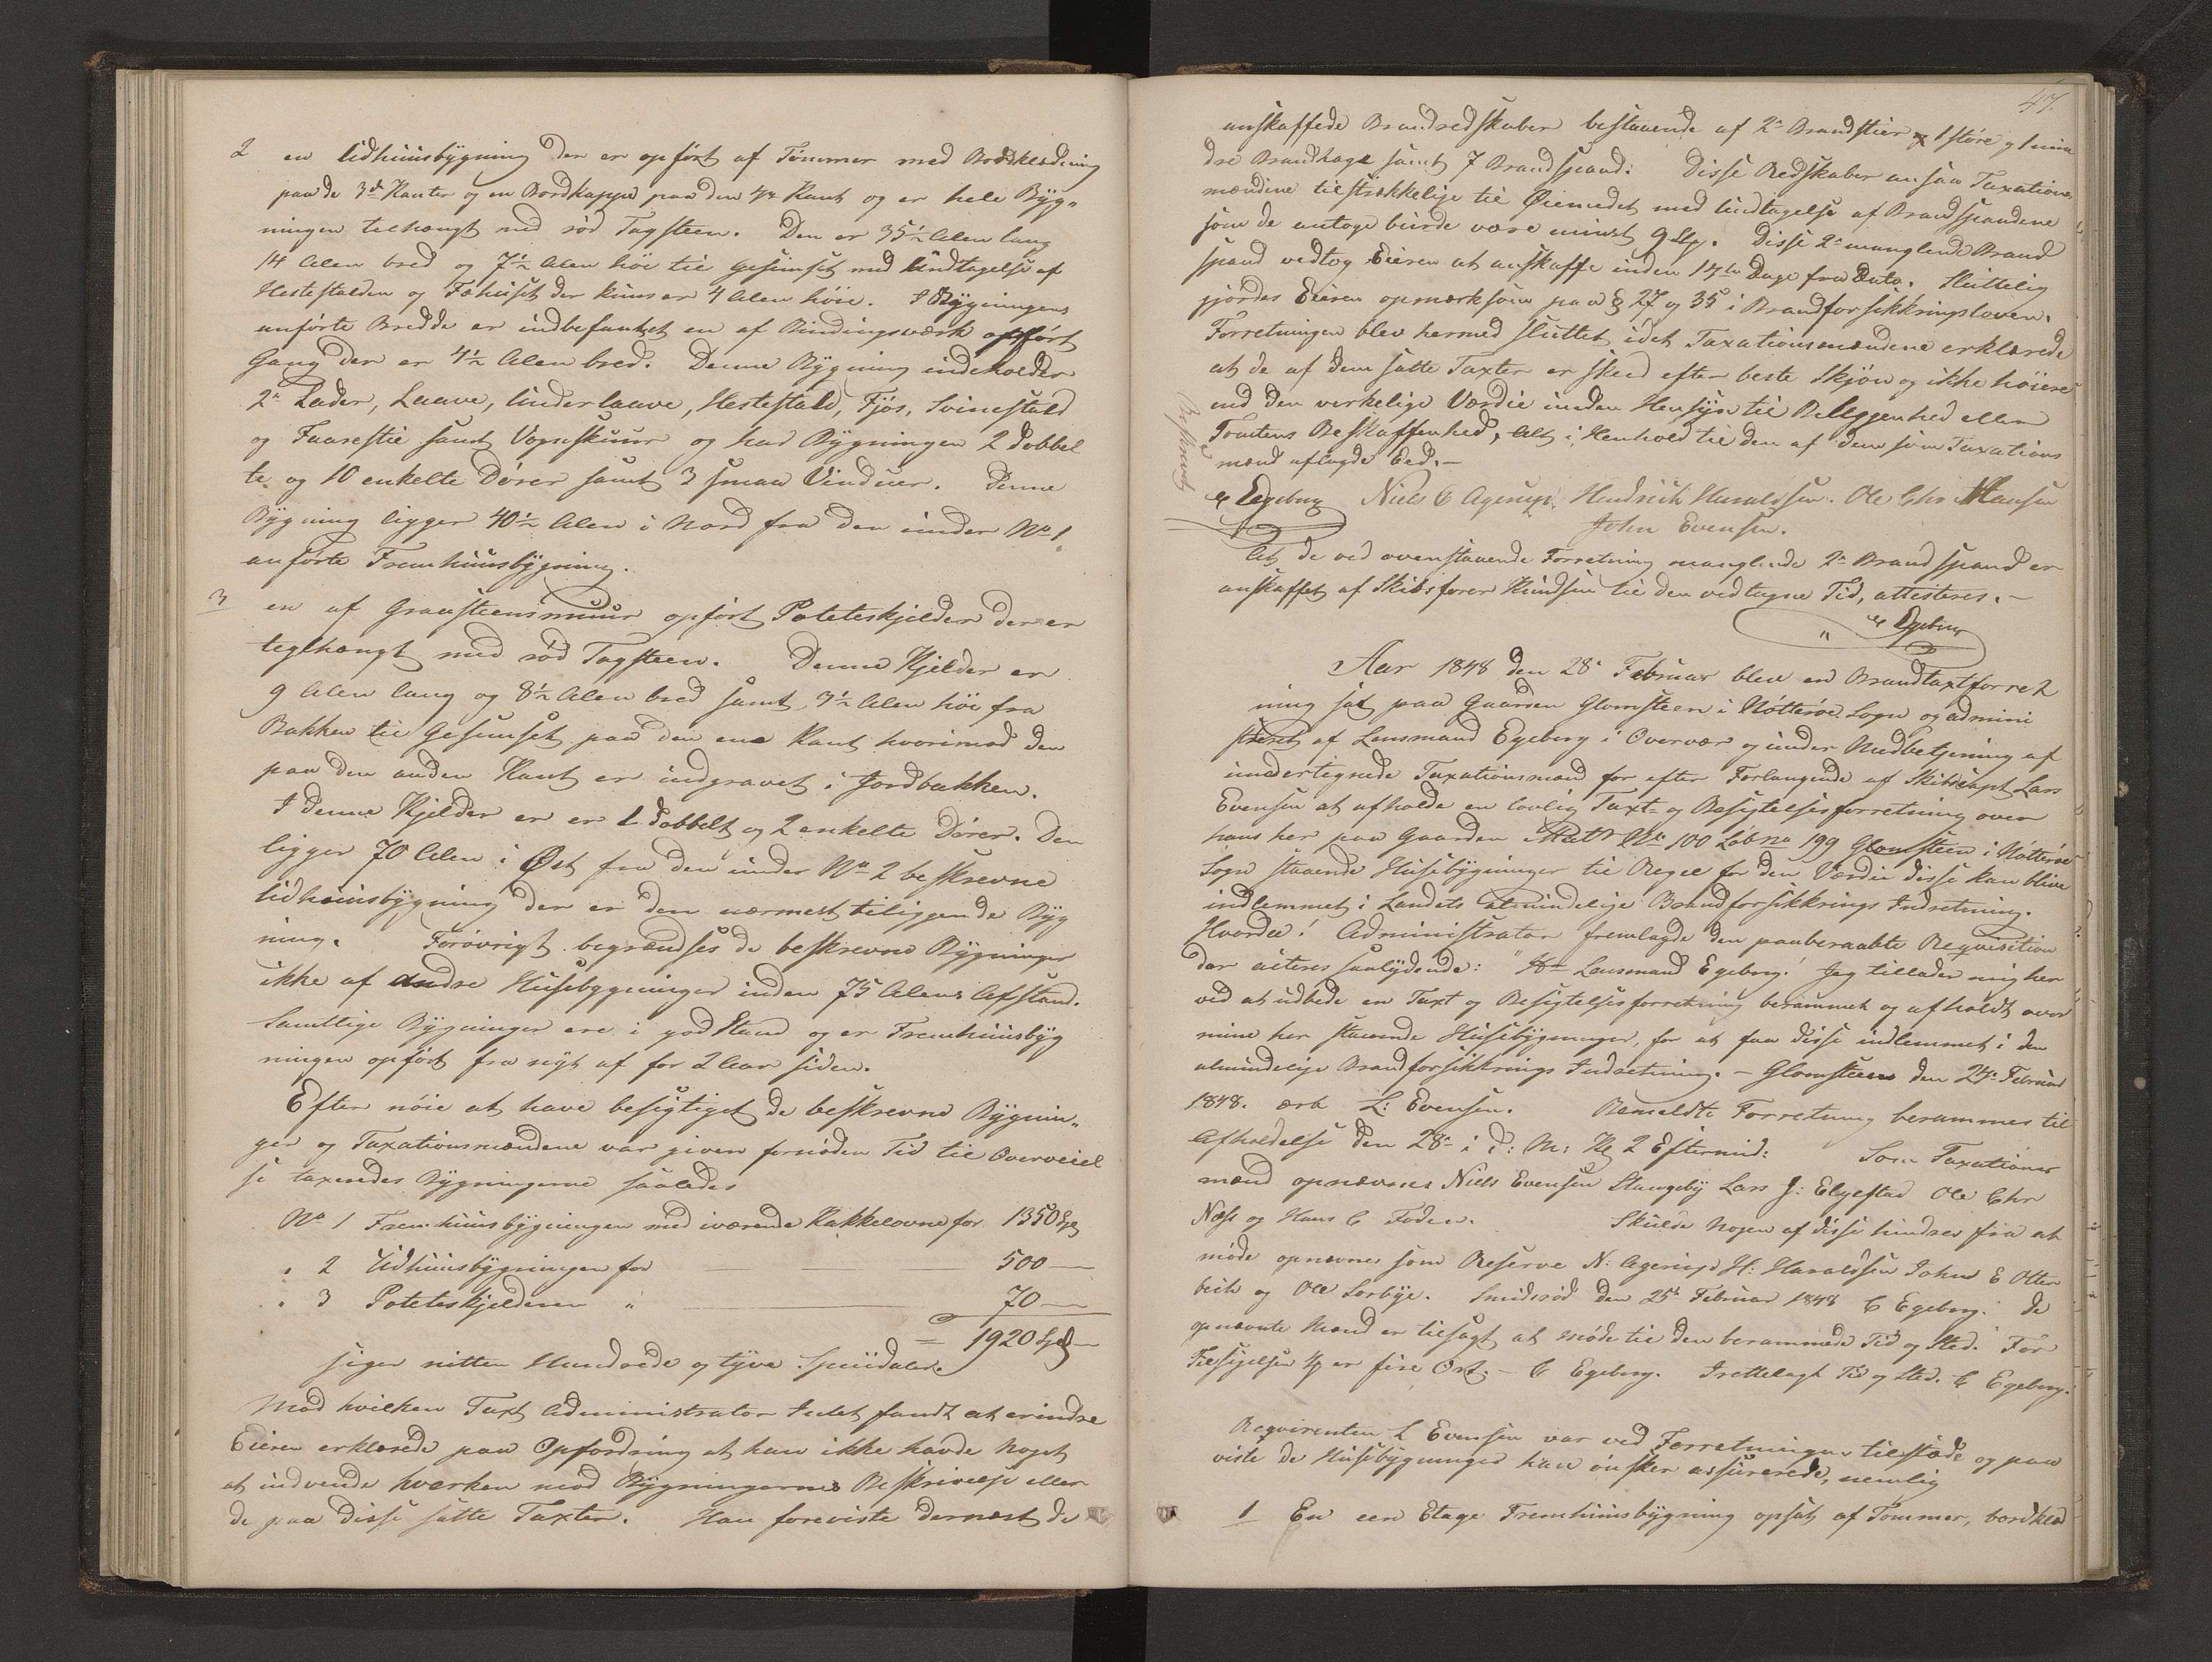 2 en Udhuusbygning der er opført af Tømmer med Bordklædning
paa de 3de Kanter og en Bordkappe paa den 4de Kant og er hele Byg-
ningen techængt med rød Tagsteen. Den er 35½ Alen lang
14 Alen bred og 7½ Alen høi til Gesimset med Undtagelse af
Hestestalden og Fæhuset der kuns er 4 Alen høie. I Bygningens
anførte Bredde er indbefattet en af Bindingsværk opført
Gang der er 4½ Alen bred. Denne Bygning indeholder
2de Lader, Laave, Underlaave, Hestestald, Fjøs, Svinestald
og Faarestie samt Vognskuur og har Bygningen 2 dobbel
te og 10 enkelte Dører samt 3 smaa Vinduer. Denne
Bygning ligger 40½ Alen i Nord fra den under No 1
anførte Fremhuusbygning.
3 en af Graasteensmuur opført Poteteskjelder der er
teglhængt med rød Tagsteen. Denne Kjelder er
9 Alen lang og 8½ Alen bred samt 3½ Alen høi fra
Bakken til Gesimset paa den ene Kant hvorimod den
paa den anden Kant er indgravet i Jordbakken.
I denne Kjelder er er 1 dobbelt og 2 enkelte Dører. Den
ligger 70 Alen i Øst fra den under No 2 beskrevne
Udhuusbygning der er den nærmest tiliggende Byg
ning. Forøvrigt begrændses de beskrevne Bygninger
ikke af andre Husebygninger inden 75 Alens Afstand.
Samtlige Bygninger ere i god Stand og er Fremhuusbyg
ningen opført fra nyt af for 2 Aar siden.
Efter nøie at have besigtiget de beskrevne Bygnin-
ger og Taxationsmændene var given fornøden Tid til Overveiel
se taxeredes Bygningerne saaledes
No 1 Fremhuusbygningen med iværende Kakkelovne for 1350 Spd
" 2 Udhuusbygningen for 500 —
" 3 Poteteskjelderen " 70 —
= 1920 Spd
siger nitten Hundrede og tyve Speciedaler.
Mod hvilken Taxt Administrator Intet fandt at erindre
Eieren erklærede paa Opfordring at han ikke havde Noget
at indvende hverken mod Bygningernes Beskrivelse eller
de paa disse satte Taxter. Han foreviste dernæst de
47.
anskaffede Brandredskaber bestaaende af 2de Brandstier 1 større og 1 min
dre Brandhage samt 7 Brandspand. Disse Redskaber ansaa Taxations
mændene tilstrækkelige til Øiemedet med Undtagelse af Brandspandene
som de antoge burde være mindst 9 Stk. Disse 2de manglende Brand
spand vedtog Eieren at anskaffe inden 14ten Dage fra Dato. Sluttelig
gjordes Eieren opmærksom paa § 27 og 35 i Brandforsikkringsloven.
Forretningen blev hermed sluttet idet Taxationsmændene erklærede
at de af dem satte Taxter er skeed efter beste Skjøn og ikke høiere
end den verkelige Værdie uden Hensyn til Beliggenhed eller
Tomtens Beskaffenhed, Alt i Henhold til den af dem som Taxations
mænd aflagde Eed.—
Beskrevet
C Egeberg Niels C Agerup Hendrich Haraldsen. Ole Chr Hansen
John Evensen.
At de ved ovenstaaende Forretning manglende 2de Brandspand er
anskaffet af Skibsfører Knudsen til den vedtagne Tid, attesteres.—
C Egeberg
Aar 1848 den 28de Februar blev en Brandtaxtforret
ning sat paa Gaarden Glomsteen i Nøtterøe Sogn og admini
streret af Lensmand Egeberg i Overvær og under Medbetjening af
undertegnede Taxationsmænd for efter Forlangende af Skibscapt Lars
Evensen at afholde en lovlig Taxt- og Besigtelsesforretning over
hans her paa Gaarden Matr No 100 Løb no 199 Glomsteen i Nøtterøe
Sogn staaende Husebygninger til Regel for den Værdie disse kan blive
indlemmet i Landets almindelige Brandforsikkrings Indretning.
Hvorda! Administrator fremlagde den paaberaabte Reqvisition
der acteres saalydende: "Hr Lensmand Egeberg! Jeg tillader mig her
ved at udbede en Taxt og Besigtelsesforretning berammet og afholdt over
mine her staaende Husebygninger, for at faa disse indlemmet i den
almindelige Brandforsikkrings Indretning. — Glomsteen den 25de Februar
1848. ærb L: Evensen. Bemeldte Forretning berammes til
Afholdelse den 28de i d: M: Kl 2 Eftermid: Som Taxations
mænd opnævnes Niels Evensen Stangeby Lars J: Elgestad Ole Chr
Næss og Hans C Foden. Skulde Nogen af disse hindres fra at
møde opnævnes som Reserve N: Agerup H: Haraldsen John E Otter
bech og Ole Sørbye. Smidsrød den 25de Februar 1848 C Egeberg. De
opnævnte Mænd er tilsagt at møde til den berammede Tid og Sted. For
Tilsigelsen er fire Ort.— C Egeberg. Irettelagt Tid og Sted. C Egeberg.
Reqvirenten L Evensen var ved Forretningen tilstæde og paa
viste de Husebygninger han ønsker assurerede, nemlig
1 En een Etage Fremhuusbygning opsat af Tømmer, bordklæd